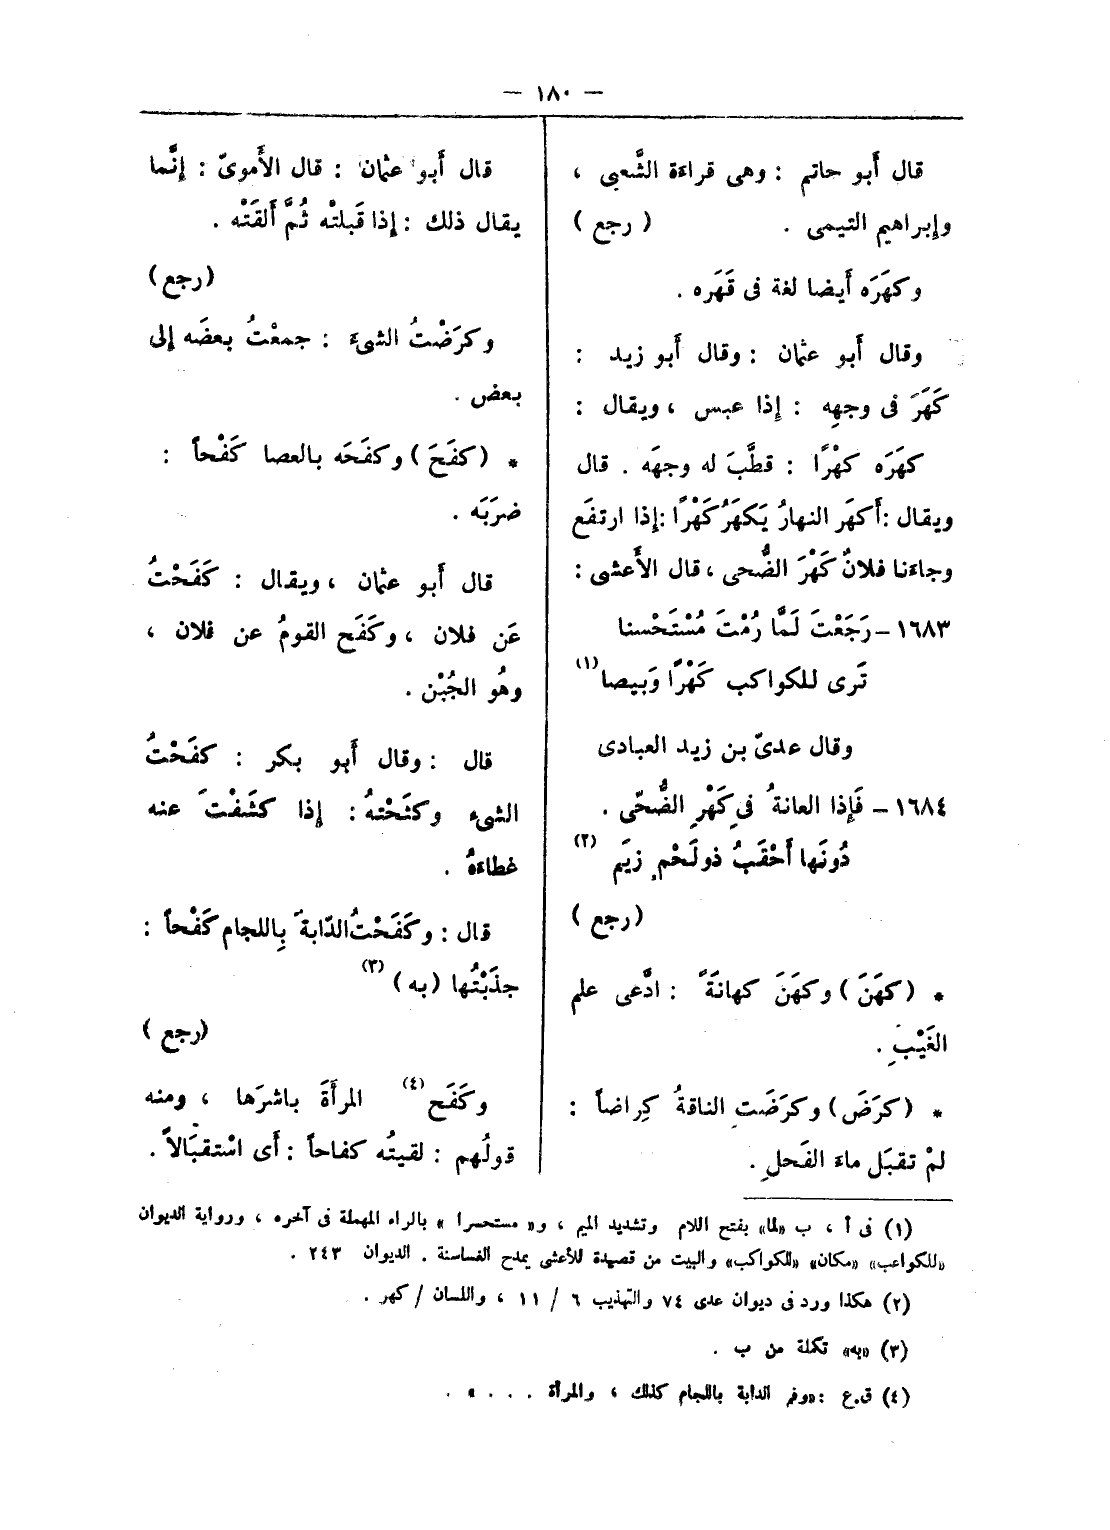 — ١٨٠ —
قال أَبو حاتم : وهى قراءة الشَّعبى ،
وإبراهيم التيمى . ( رجع )
وكهَرَه أَيضا لغة فى قَهَره .
وقال أَبو عثمان : وقال أَبو زيد :
كَهَرَ فى وجهِه : إذا عبس ، ويقال :
كهَرَه كهْرًا : قطَّبَ له وجهَه . قال
ويقال : أَكهَر النهارُ يَكهَرُ كَهْرًا : إذا ارتفَع
وجاءَنا فلانٌ كَهْرَ الضُّحى ، قال الأَعشى :
١٦٨٣ – رَجَعْتَ لَمَّا رُمْتَ مُسْتَحْسنا
تَرى للكواكب كَهْرًا وَبيصا (١)
وقال عدىّ بن زيد العبادى
١٦٨٤ – فَإذا العانةُ فى كَهْرِ الضُّحَى .
دُونَها أَحْقَبُ ذو لَحْمٍ زيَم (٢)
( رجع )
* ( كهَنَ ) وكهَنَ كهانَةً : ادَّعى علم
الغَيْبِ .
* ( كرَضَ ) وكرَضَتِ الناقةُ كِراضاً :
لمْ تقبَل ماءَ الفَحلِ .
قال أَبو عثمان : قال الأُموىّ : إنَّما
يقال ذلك : إذا قَبلتْه ثُمَّ أَلقَتْه .
( رجع )
وكرَضْتُ الشىءَ : جمعْتُ بعضَه إلى
بعض .
* ( كفَحَ ) وكفَحَه بالعصا كَفْحاً :
ضرَبَه .
قال أَبو عثمان ، ويقال : كَفَحْتُ
عَن فلان ، وكَفَح القومُ عن فلان ،
وهُو الجُبْن .
قال : وقال أَبو بكر : كفَحْتُ
الشىء وكثَحْتهُ : إذا كشَفْتَ عنه
غطاءَهُ .
قال : وكَفَحْتُ الدّابةَ بِاللجام كَفْحاً :
جذَبْتُها ( به ) (٣)
( رجع )
وكَفَح (٤) المرأَةَ باشرَها ، ومنه
قولُهم : لقيتُه كفاحاً : أَى اسْتقبَالاً .
(١) فى أ ، ب «لما» بفتح اللام وتشديد الميم ، و« مستحسرا » بالراء المهملة فى آخره ، ورواية الديوان
«للكواعب» «مكان» «للكواكب» والبيت من قصيدة للأعشى يمدح الغساسنة . الديوان ٢٤٣ .
(٢) هكذا ورد فى ديوان عدى ٧٤ والتهذيب ٦ / ١١ ، واللسان / كهر .
(٣) «به» تكملة من ب .
(٤) ق.ع : «وفم الدابة باللجام كذلك ، والمرأة . . . » .